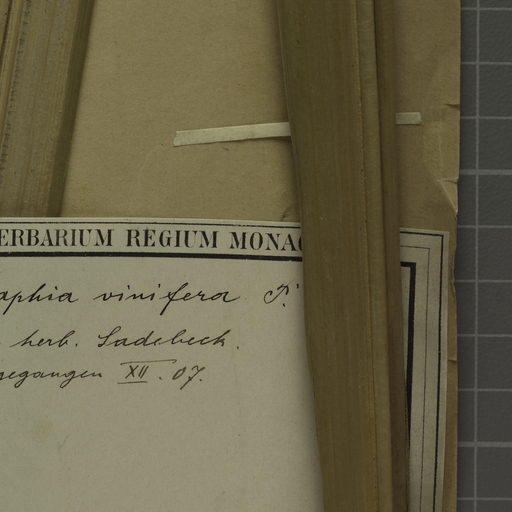 ERBARIUM REGIUM MONAC
aphia vinifera P.
herb. Sadebeck.
gegangen XII. 07.